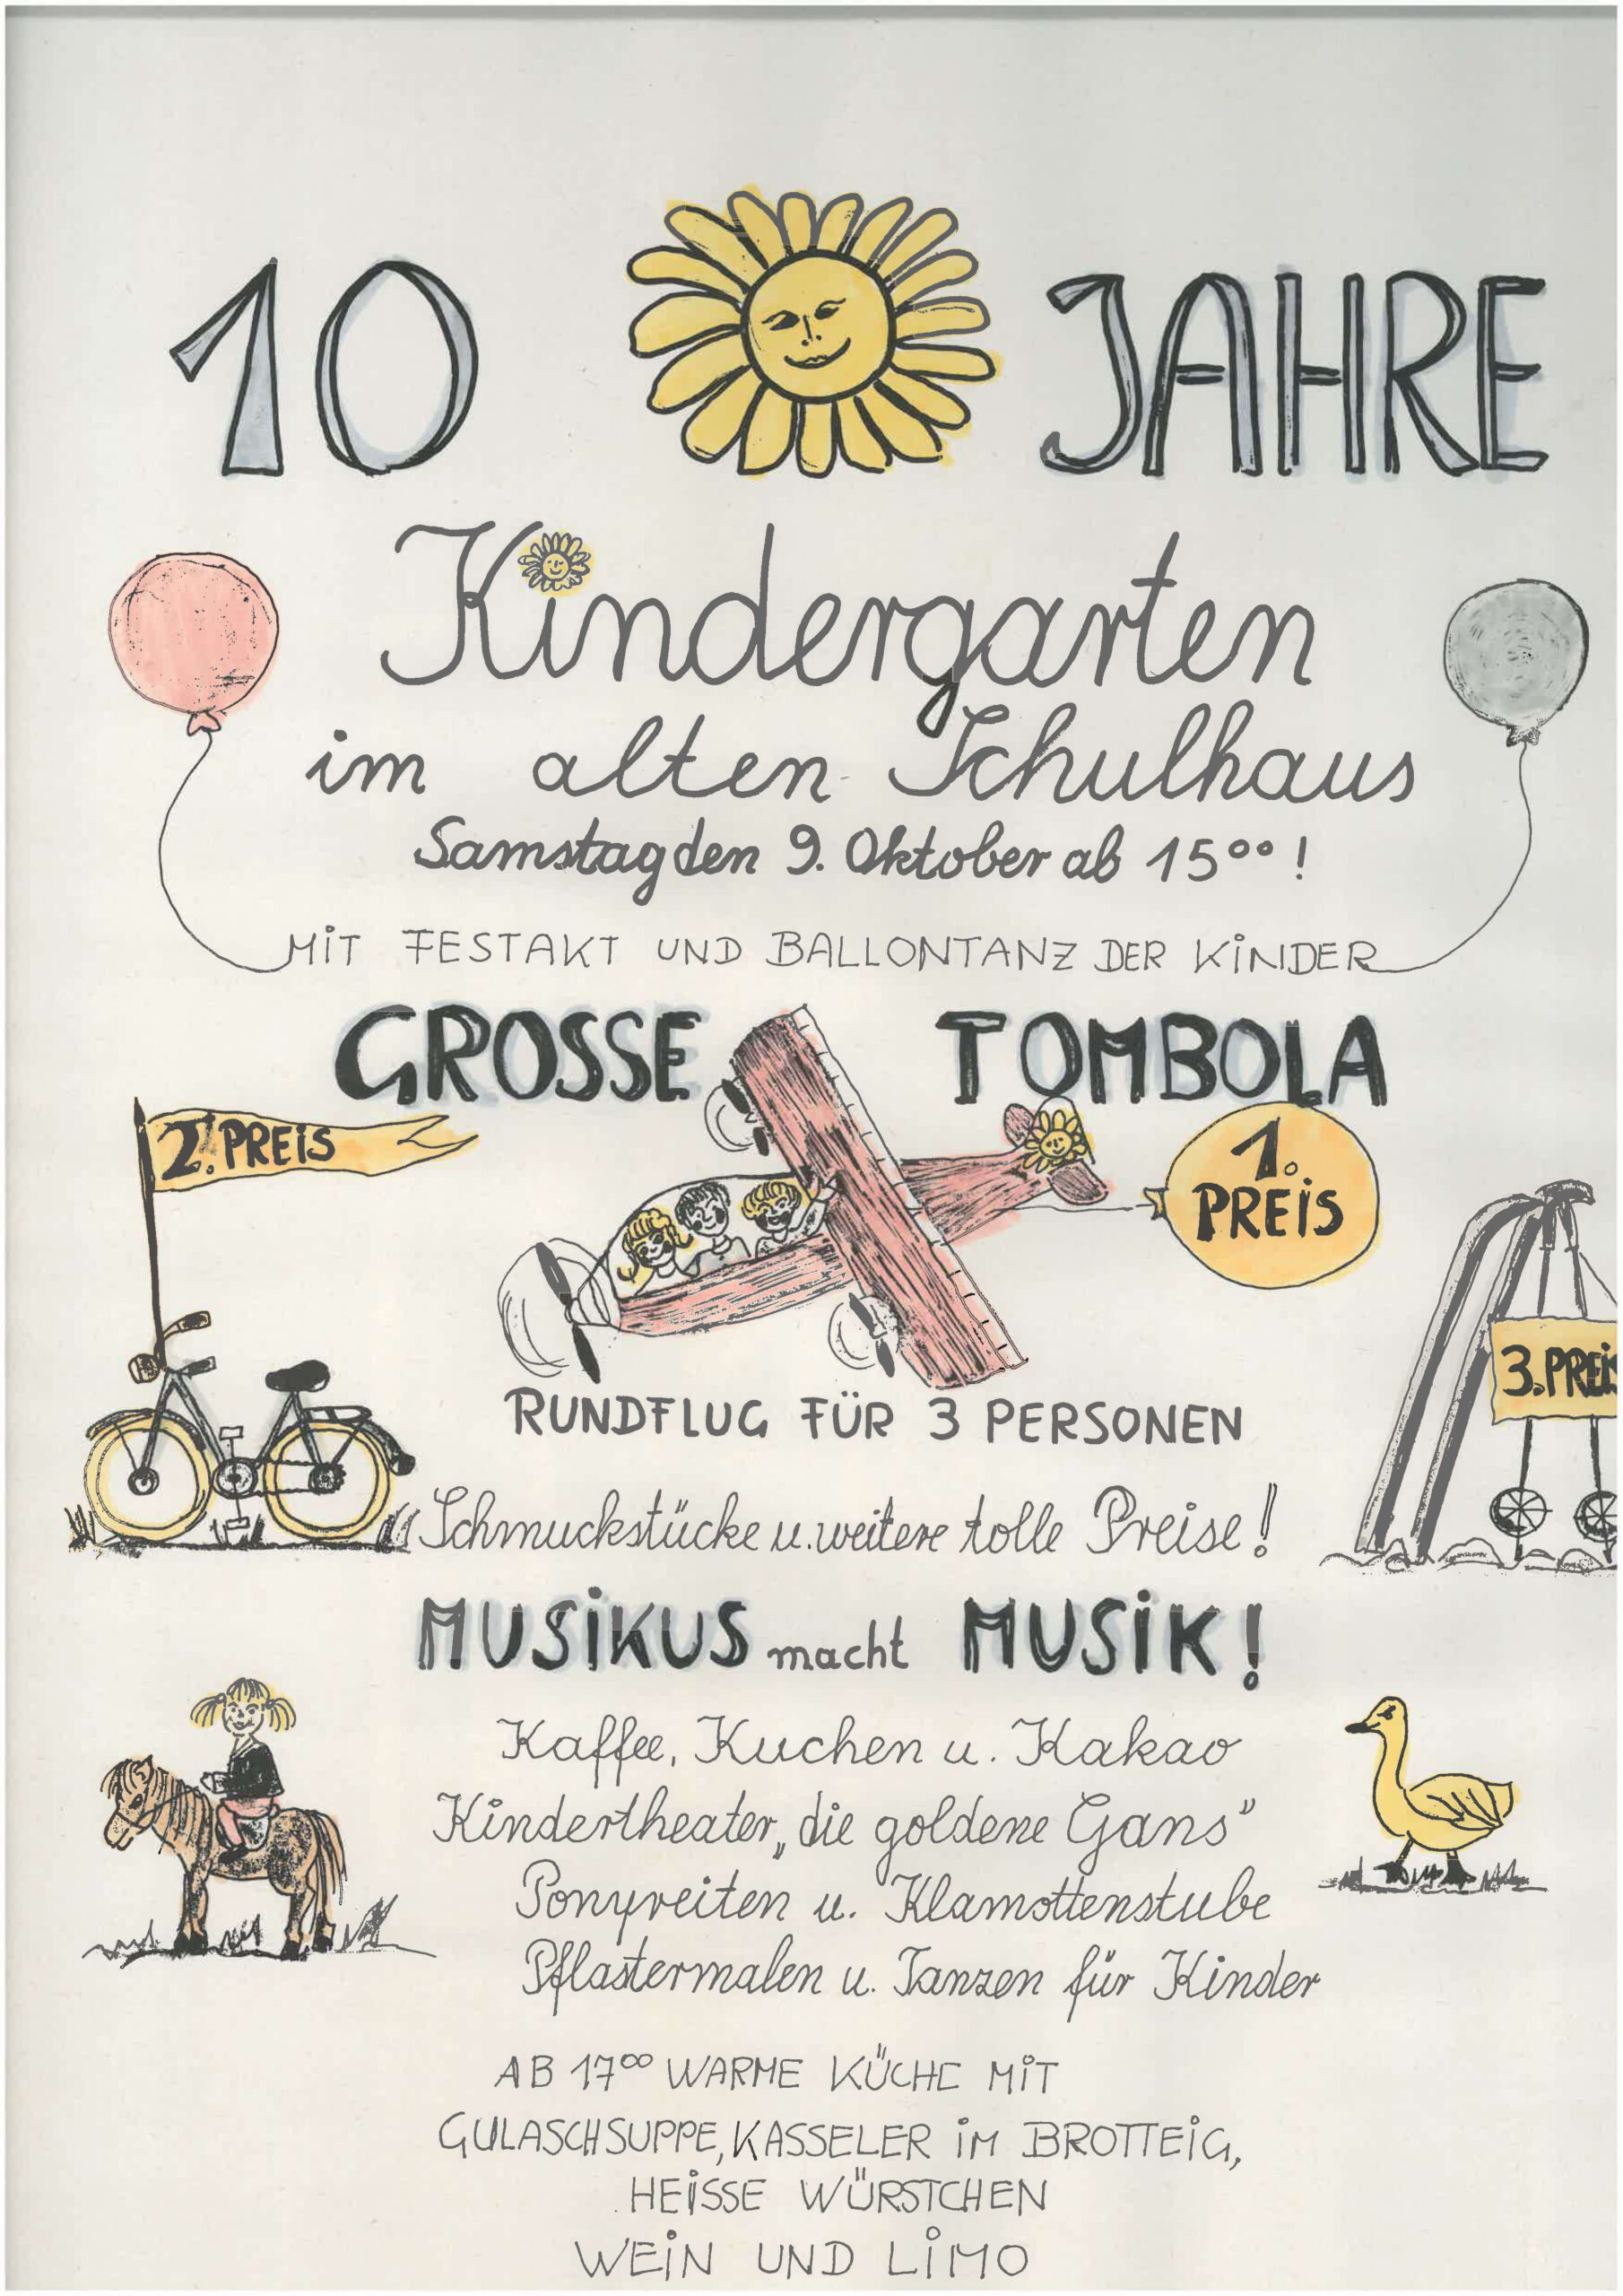 10 JAHRE
Kindergarten
im alten Schulhaus
Samstag den 9. Oktober ab 15⁰⁰!
MIT FESTAKT UND BALLONTANZ DER KINDER
GROSSE TOMBOLA
2. PREIS
1.
PREIS
3. PREIS
RUNDFLUG FÜR 3 PERSONEN
Schmuckstücke u. weitere tolle Preise!
MUSIKUS macht MUSIK!
Kaffee, Kuchen u. Kakao
Kindertheater „die goldene Gans"
Ponyreiten u. Klamottenstube
Pflastermalen u. Tanzen für Kinder
AB 17⁰⁰ WARME KÜCHE MIT
GULASCHSUPPE, KASSELER IM BROTTEIG,
HEISSE WÜRSTCHEN
WEIN UND LIMO